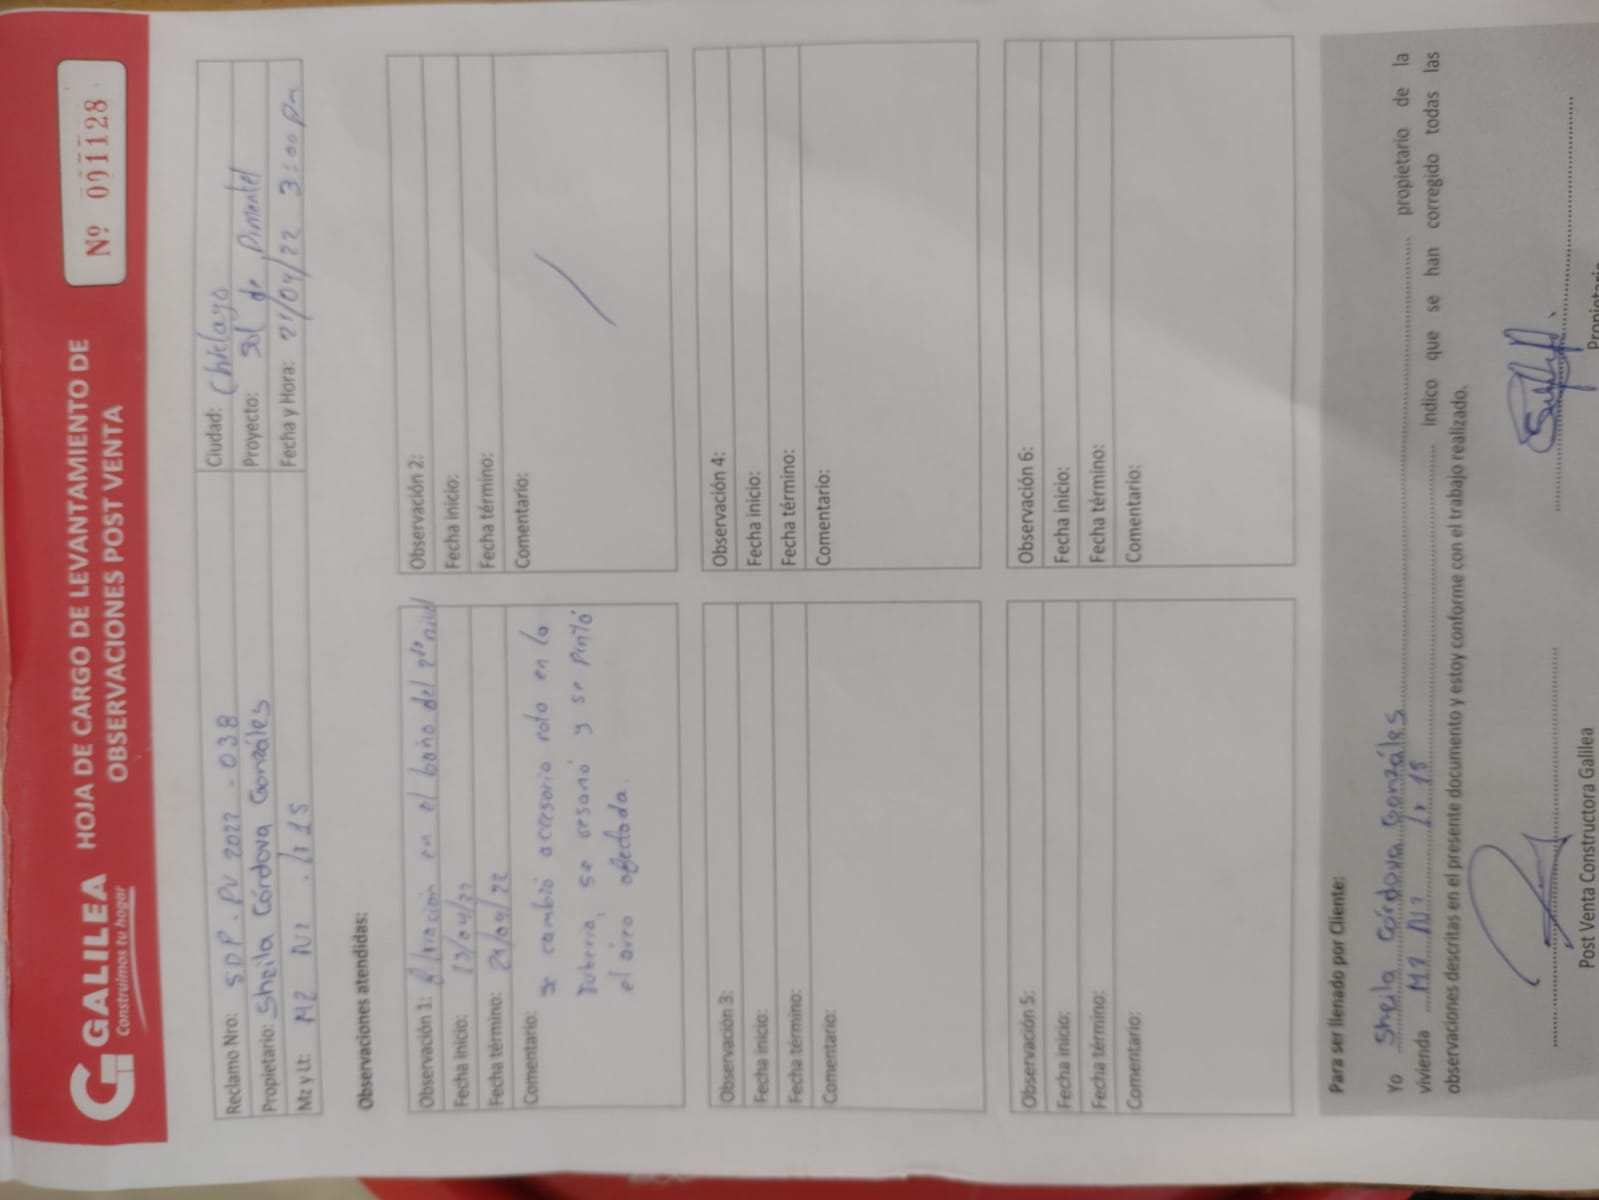 GALILEA
Construimos tu hogar
HOJA DE CARGO DE LEVANTAMIENTO DE
OBSERVACIONES POST VENTA
Nº 001128
Reclamo Nro: SDP. PV 2022 - 038
Ciudad: Chiclayo
Propietario: Sheila Córdova Gonzáles
Proyecto: Sol de Pimentel
Mz y Lt: MZ N2 . lt 15
Fecha y Hora: 21/04/22 3:00 Pm
Observaciones atendidas:
Observación 1: filtración en el baño del 2do nivel
Fecha inicio: 13/04/22
Fecha término: 21/04/22
Comentario: se cambió accesorio roto en la
tuberia, se resanó y se pintó
el área afectada.
Observación 2:
Fecha inicio:
Fecha término:
Comentario:
Observación 3:
Fecha inicio:
Fecha término:
Comentario:
Observación 4:
Fecha inicio:
Fecha término:
Comentario:
Observación 5:
Fecha inicio:
Fecha término:
Comentario:
Observación 6:
Fecha inicio:
Fecha término:
Comentario:
Para ser llenado por Cliente:
Yo Sheila Córdova Gonzáles propietario de la
vivienda MZ N2 lt 15 indico que se han corregido todas las
observaciones descritas en el presente documento y estoy conforme con el trabajo realizado.
Post Venta Constructora Galilea
Propietario